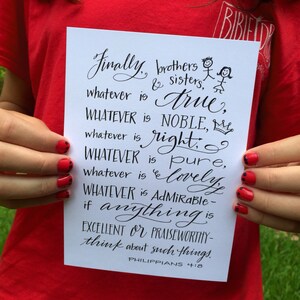 BIBLE
Finally, brothers
& sisters,
whatever is true,
WHATEVER is NOBLE,
whatever is right,
WHATEVER is pure,
whatever is lovely,
WHATEVER is ADMIRABLE-
if anything is
EXCELLENT OR PRAISEWORTHY-
think about such things.
PHILIPPIANS 4:8